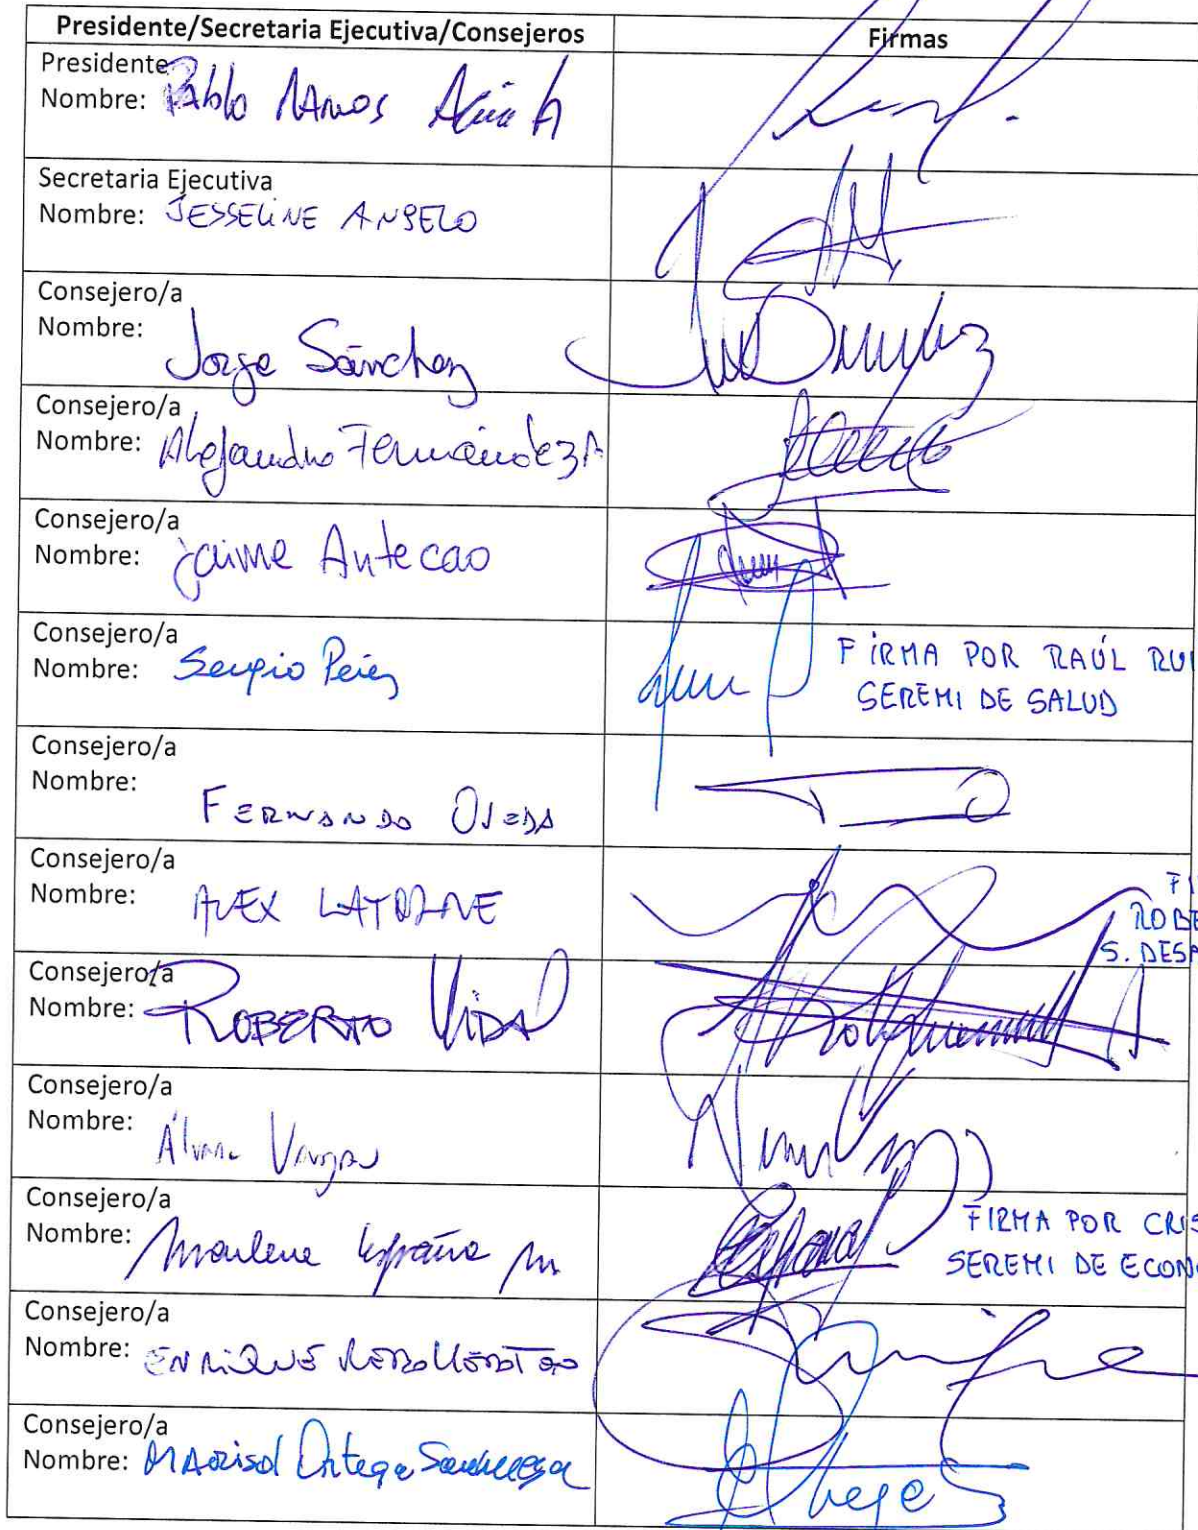 Presidente/Secretaria Ejecutiva/Consejeros Firmas
Presidente
Nombre: Pablo Ramos
Secretaria Ejecutiva
Nombre: JESSELINE ANGELO
Consejero/a
Nombre: Jorge Sánchez
Consejero/a
Nombre: Alejandro Fernández A
Consejero/a
Nombre: jaime Antecao
Consejero/a
Nombre: Sergio Pérez
FIRMA POR RAÚL RUI
SEREMI DE SALUD
Consejero/a
Nombre: FERNANDO OJEDA
Consejero/a
Nombre: ALEX LATORRE
FI
ROBE
S. DESA
Consejero/a
Nombre: ROBERTO VIDAL
Consejero/a
Nombre: Álvaro Vargas
Consejero/a
Nombre: Marlene España M
FIRMA POR CRIS
SEREMI DE ECONO
Consejero/a
Nombre: ENRIQUE
Consejero/a
Nombre: MARISOL Ortega